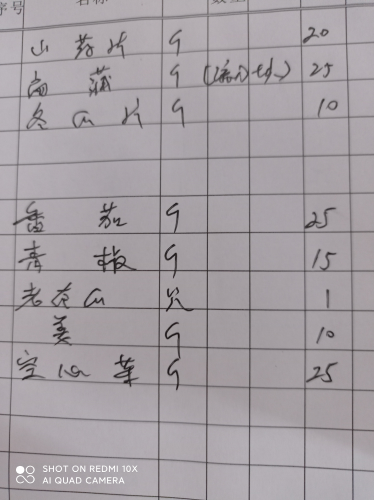 序号 名称 数量
山药片 G 20
菖蒲 G 25
冬瓜片 G 10
番茄 G 25
青椒 G 15
老冬瓜 只 1
姜 G 10
空心菜 G 25
SHOT ON REDMI 10X
AI QUAD CAMERA